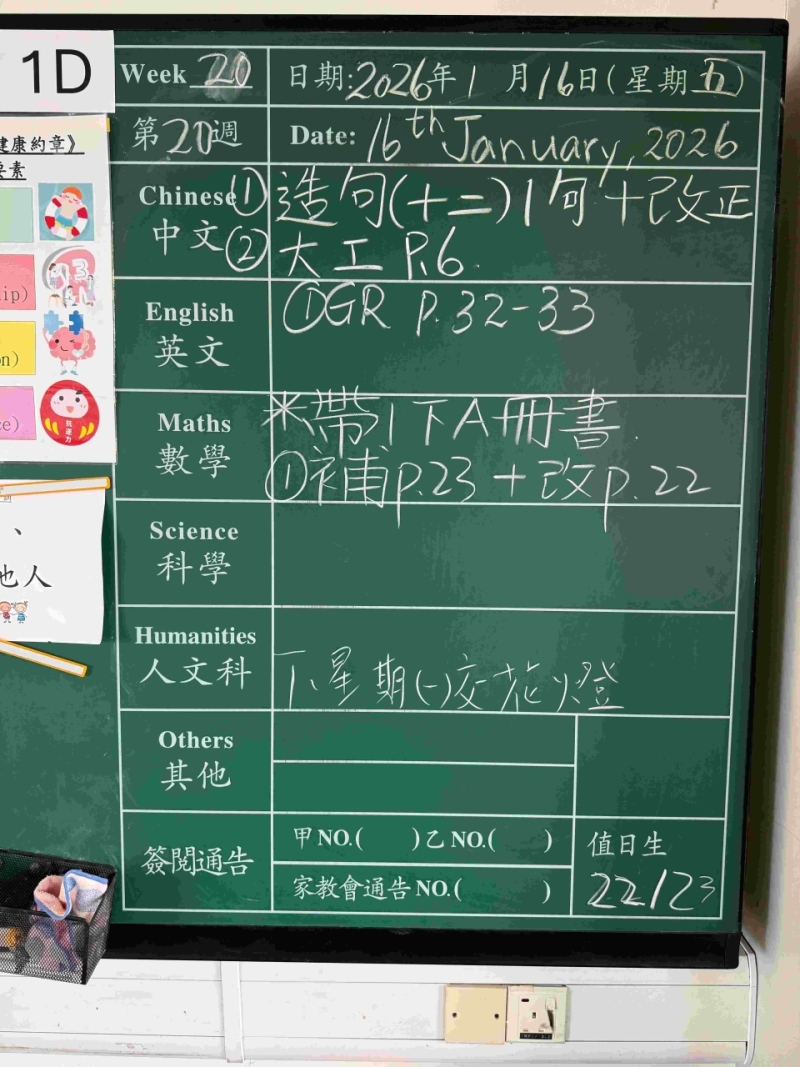 1D
Week 20
日期:2026年1月16日(星期五)
第20週
Date: 16th January, 2026
健康約章》
要素
Chinese
中文
①造句(十二)1句+改正
②大工 P.6
ip)
English
英文
①GR P.32-33
on)
ce)
Maths
數學
米帶1下A冊書.
①補p.23+改p.22
Science
科學
、
他人
Humanities
人文科
下星期(一)交花燈
Others
其他
簽閱通告
甲NO.( )乙NO.( )
家教會通告NO.( )
值日生
22/23